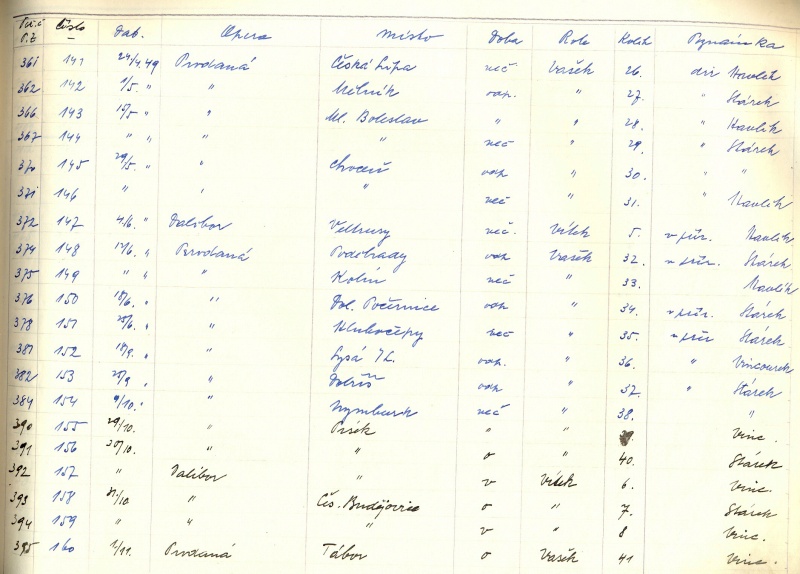 Poř.č. Číslo Dat. Opera Místo Doba Role Kolik Poznámka
P.Ž.
361 141 24/4 49 Prodaná Česká Lípa več Vašek 26. div Havlík
362 142 1/5. " " Mělník odp. " 27. " Stárek
366 143 15/5 " " Ml. Boleslav " " 28. " Havlík
367 144 " " " " več " 29. " Stárek
370 145 29/5. " " Choceň odp " 30. " "
371 146 " " " več " 31. " Havlík
372 147 4/6. " Dalibor Veltrusy več. Vítek 5. v přír. Havlík
374 148 12/6. " Prodaná Poděbrady odp Vašek 32. v přír. Stárek
375 149 " " " Kolín več " 33. Havlík
376 150 18/6. " " Dol. Počernice odp " 34. v přír. Stárek
378 151 25/6. " " Hlubočepy več " 35. v přír Stárek
381 152 18/9. " " Lysá n/L. odp. " 36. " Vincourek
382 153 25/9 " " Dobříš odp " 37. " Stárek
384 154 9/10. " " Nymburk več " 38. "
390 155 29/10. " Písek " " Vinc.
391 156 30/10. " " o " 40. Stárek
392 157 " Dalibor " v Vítek 6. Vinc.
393 158 31/10 " Čes. Budějovice o " 7. Stárek
394 159 " " " v " 8 Vinc.
395 160 1/11. Prodaná Tábor o Vašek 41 Vinc.